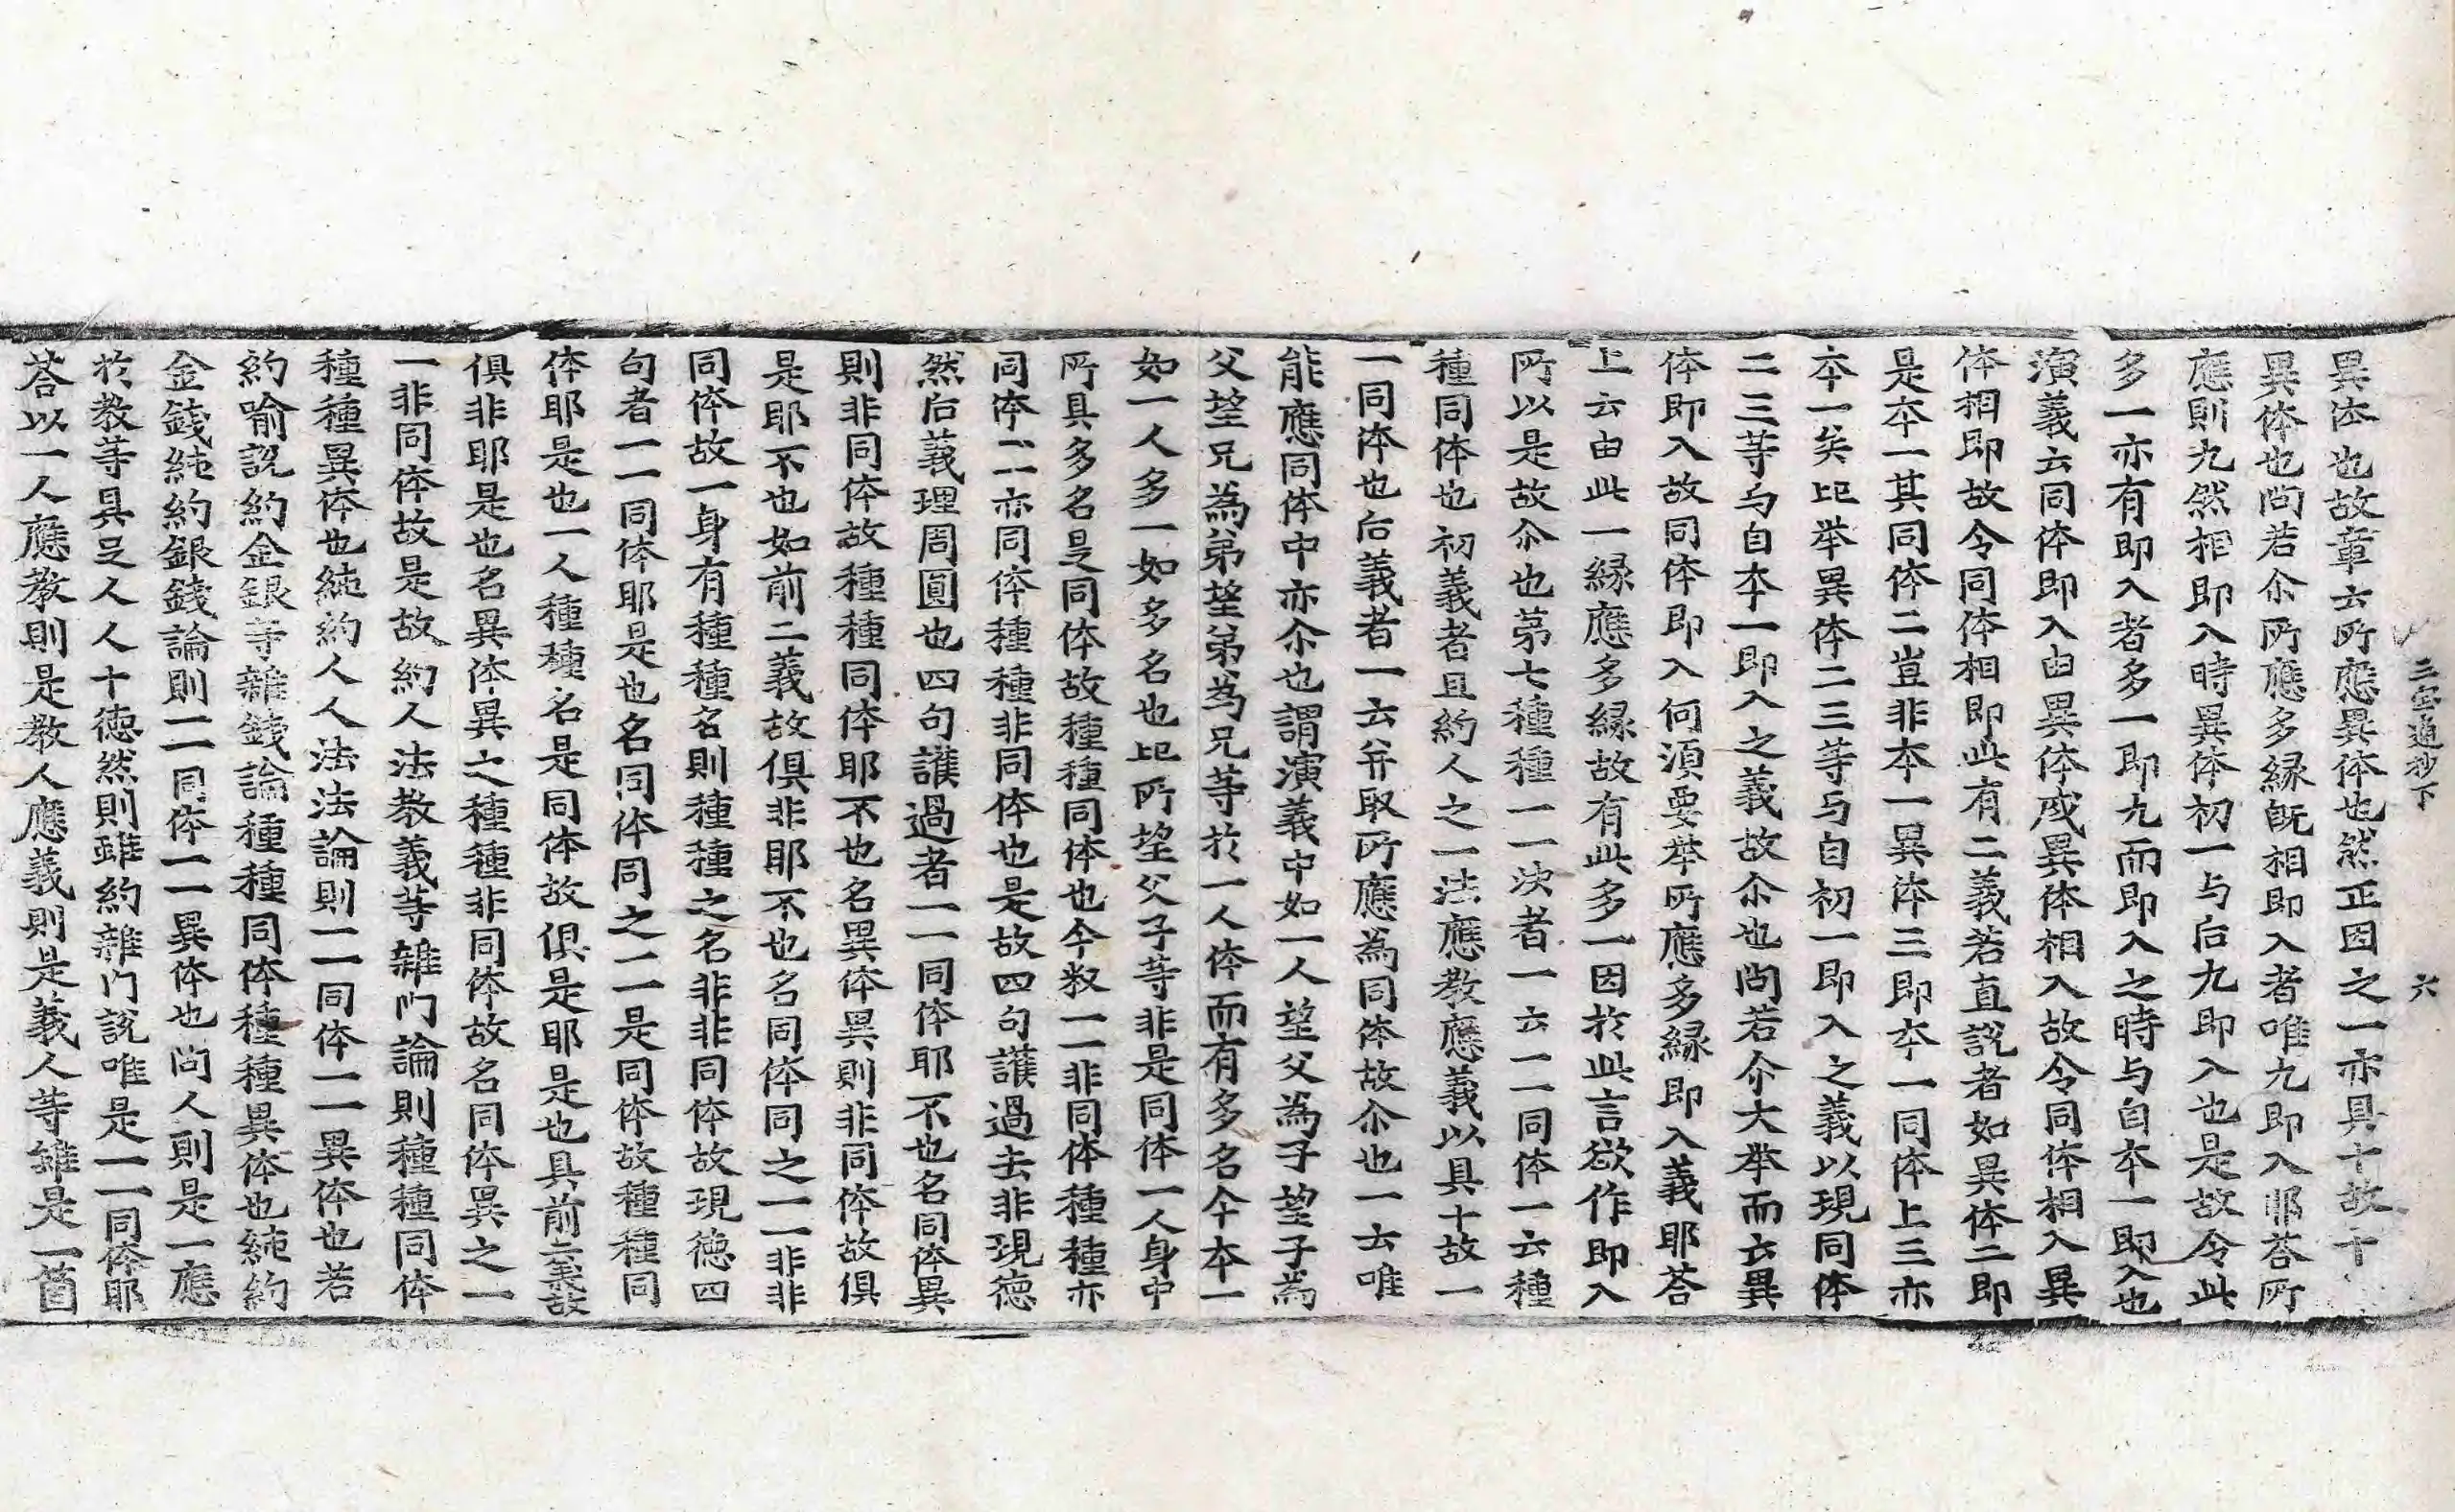 三宝通抄下　六
異体也故章云所應異体也然正因之一亦具十故十
異体也問若尒所應多縁既相即入者唯九即入耶荅所
應則九然相即入時異体初一与后九即入也是故令此
多一亦有即入者多一即九而即入之時与自本一即入也
演義云同体即入由異体成異体相入故令同体相入異
体相即故令同体相即此有二義若直説者如異体二即
是本一其同体二豈非本一異体三即本一同体上三亦
本一矣比举異体二三等与自初一即入之義以現同体
二三等与自本一即入之義故尒也問若介大举而云異
体即入故同体即入何湏要举所應多縁即入義耶荅
上云由此一縁應多縁故有此多一因於此言欲作即入
所以是故尒也苐七種種一一决者一云一一同体一云種
種同体也初義者且約人之一法應教應義以具十故一
一同体也后義者一云并取所應為同体故尒也一云唯
能應同体中亦尒也謂演義中如一人望父為子望子為
父望兄為弟望弟為兄等於一人体而有多名今本一
如一人多一如多名也比所望父子等非是同体一人身中
所具多名是同体故種種同体也今叙一一非同体種種亦
同体一一亦同体種種非同体也是故四句護過去非現德
然后義理周圓也四句護過者一一同体耶不也名同体異
則非同体故種種同体耶不也名異体異則非同体故俱
是耶不也如前二義故俱非耶不也名同体同之一一非非
同体故一身有種種名則種種之名非非同体故現德四
句者一一同体耶是也名同体同之一一是同体故種種同
体耶是也一人種種名是同体故俱是耶是也具前二義故
俱非耶是也名異体異之種種非同体故名同体異之一
一非同体故是故約人法教義等雜門論則種種同体
種種異体也純約人人法法論則一一同体一一異体也若
約喻説約金銀等雜錢論種種同体種種異体也純約
金錢純約銀錢論則一一同体一一異体也問人則是一應
於教等具足人人十徳然則雖約雜門説唯是一一同体耶
荅以一人應教則是教人應義則是義人等雖是一箇